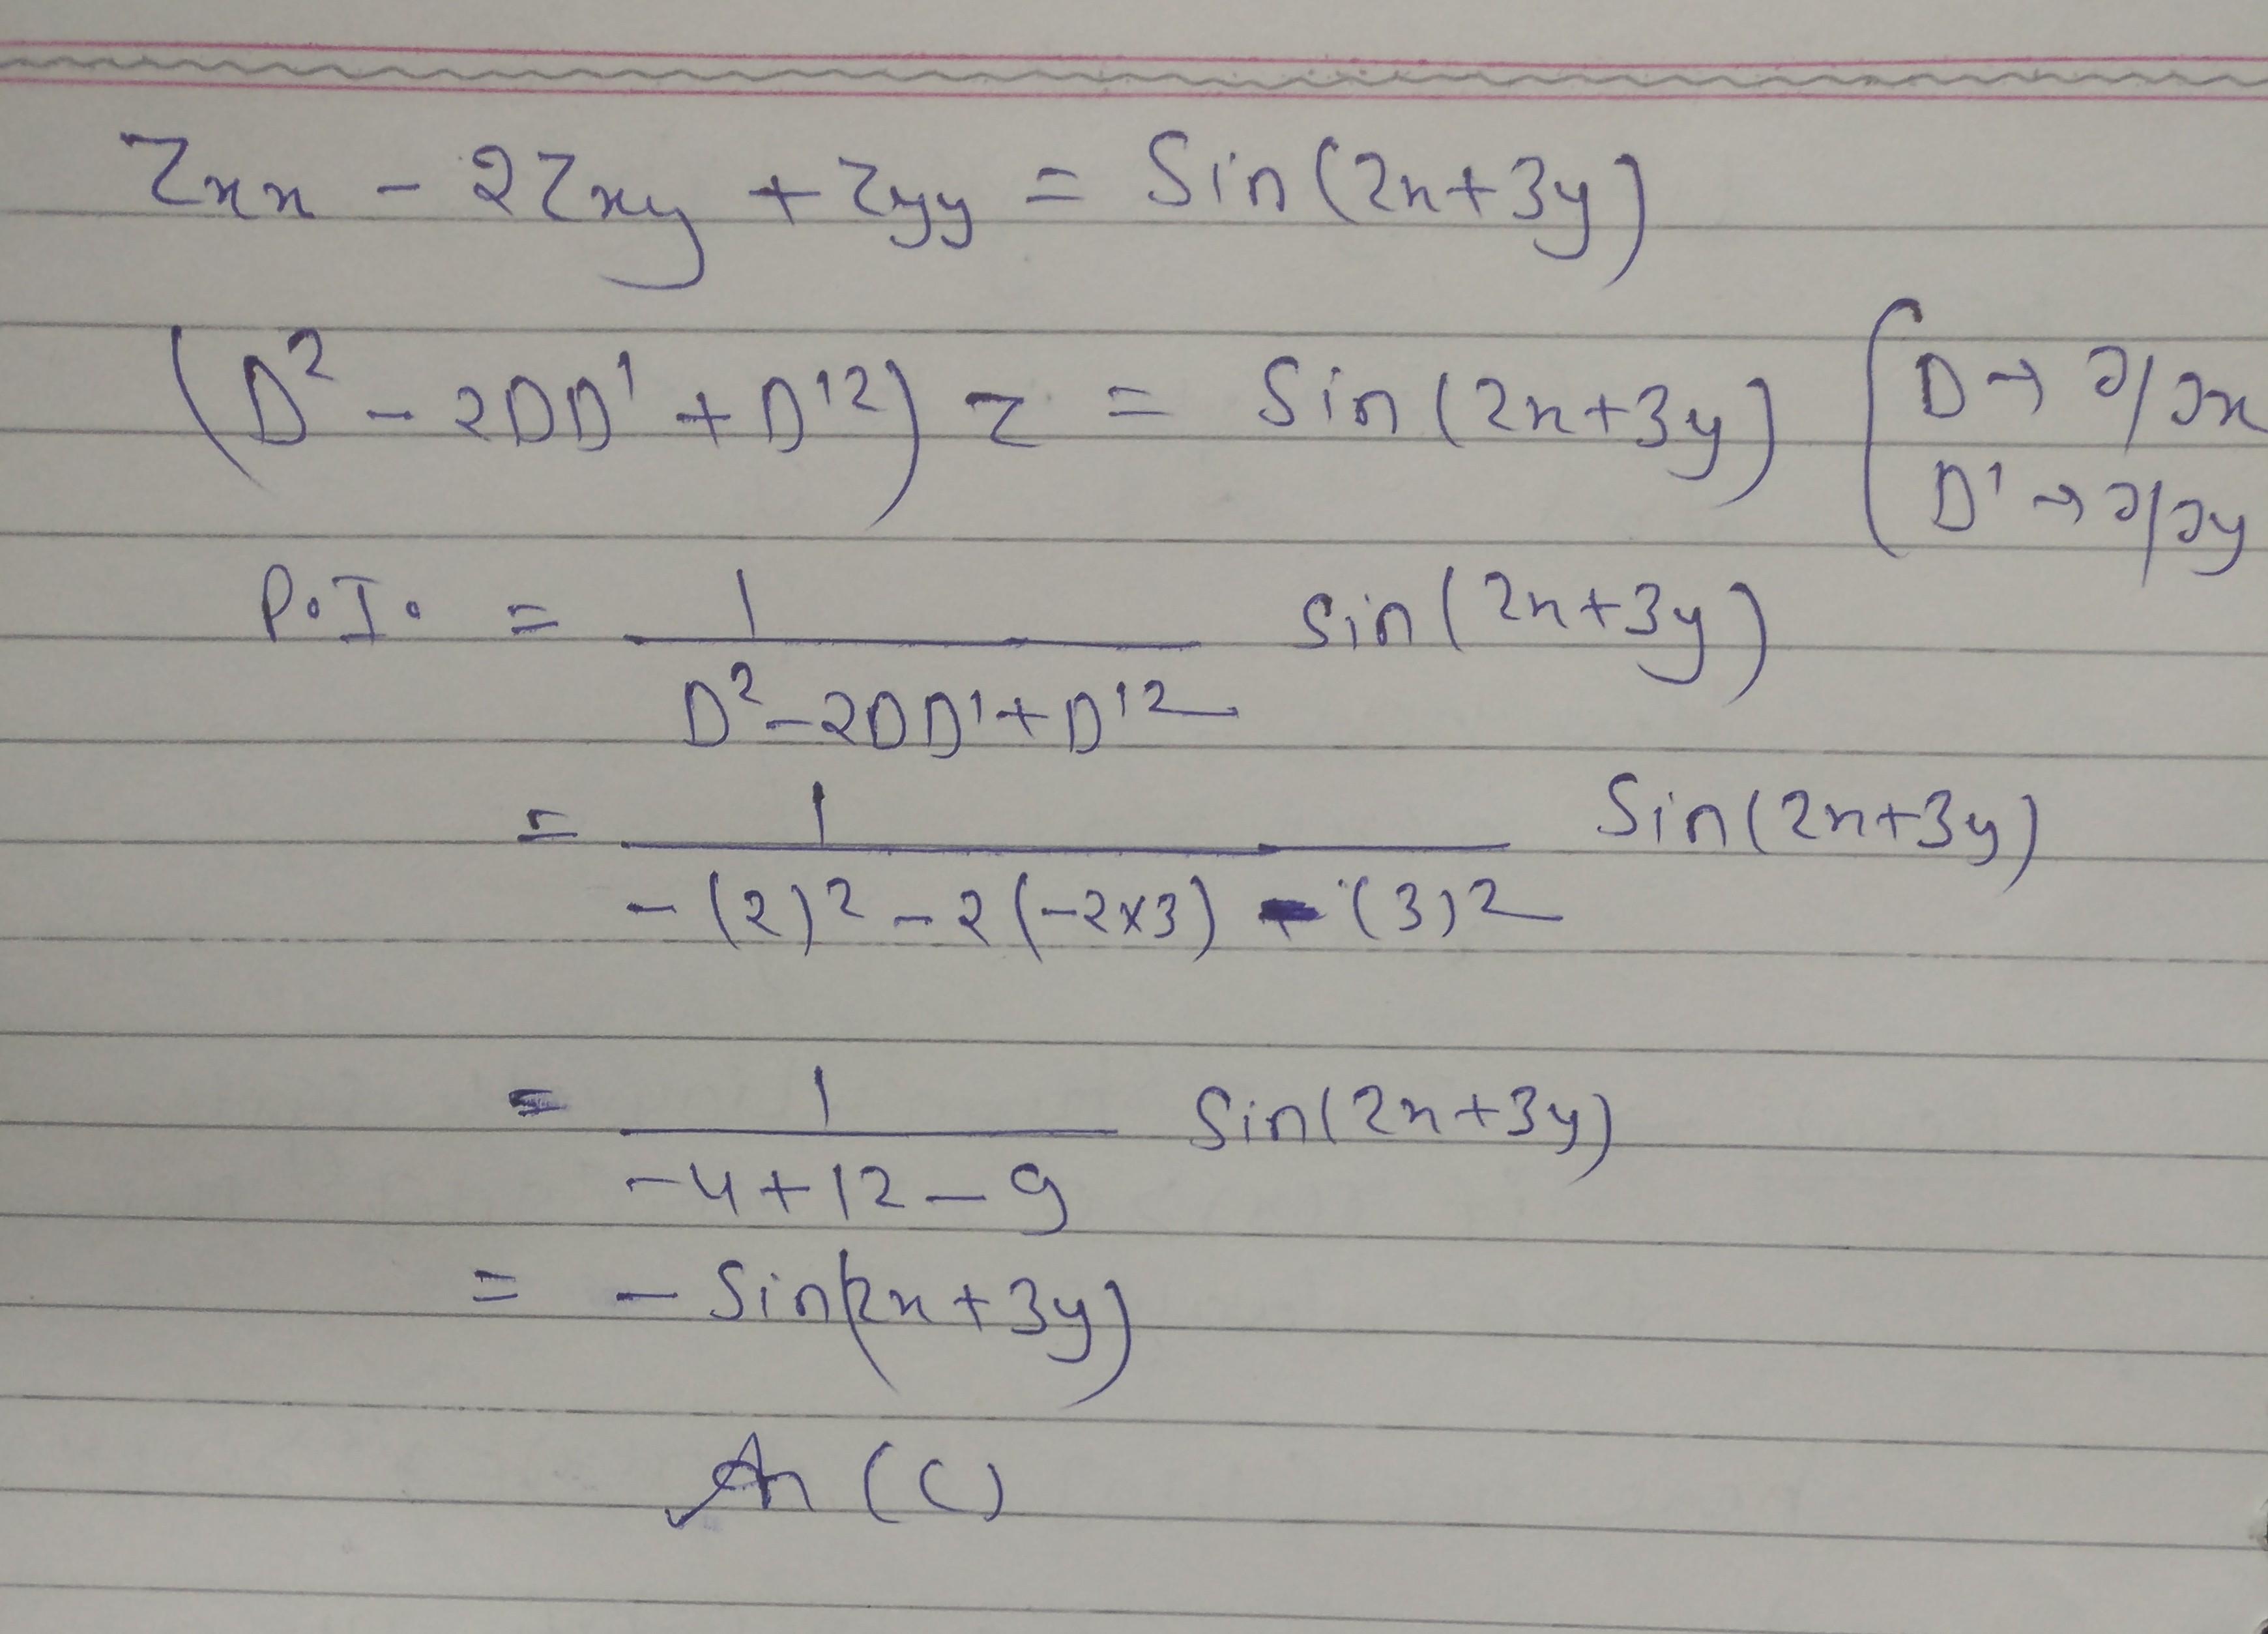 Zxx - 2Zxy + Zyy = Sin(2x+3y)
(D² - 2DD' + D'²) z = Sin(2x+3y) {D → ∂/∂x
D' → ∂/∂y
P.I. = 1/(D² - 2DD' + D'²) sin(2x+3y)
= 1/(-(2)² - 2(-2×3) - (3)²) Sin(2x+3y)
= 1/(-4+12-9) Sin(2x+3y)
= - Sin(2x+3y)
An (C)